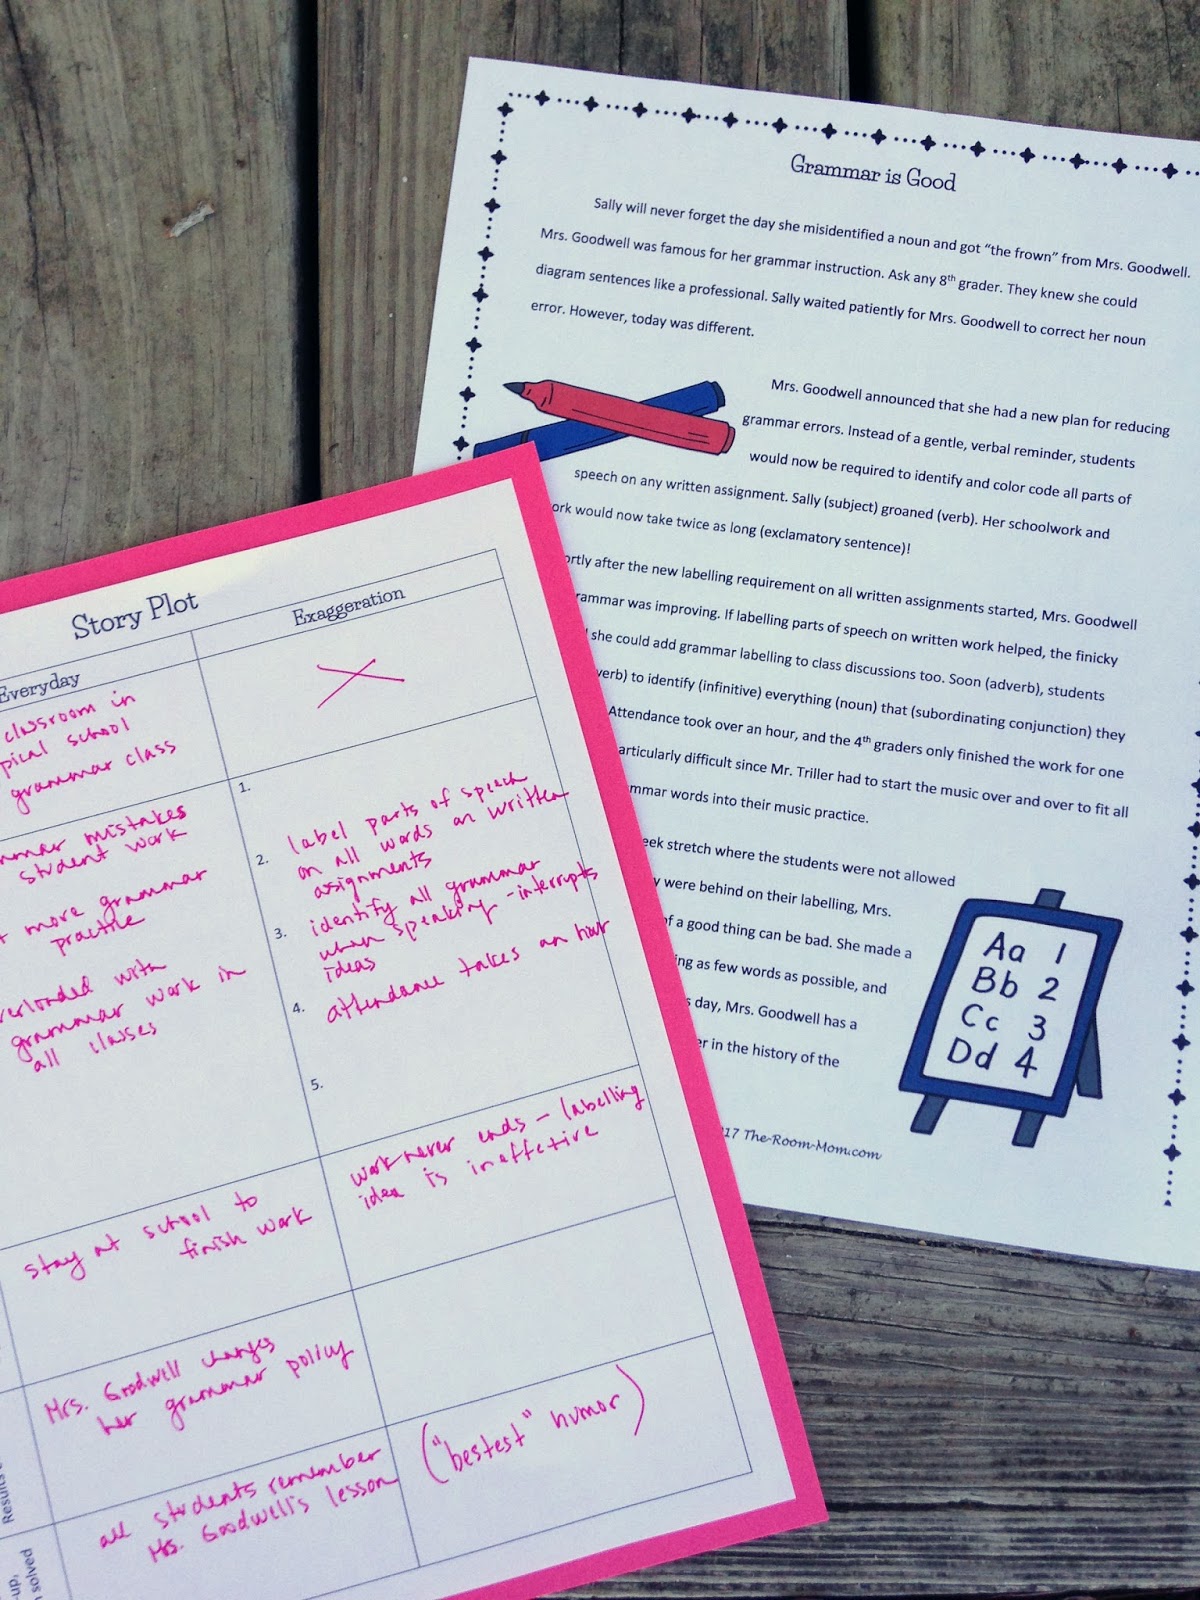 Grammar is Good
Sally will never forget the day she misidentified a noun and got “the frown” from Mrs. Goodwell.
Mrs. Goodwell was famous for her grammar instruction. Ask any 8th grader. They knew she could
diagram sentences like a professional. Sally waited patiently for Mrs. Goodwell to correct her noun
error. However, today was different.
Mrs. Goodwell announced that she had a new plan for reducing
grammar errors. Instead of a gentle, verbal reminder, students
would now be required to identify and color code all parts of
speech on any written assignment. Sally (subject) groaned (verb). Her schoolwork and
ork would now take twice as long (exclamatory sentence)!
ortly after the new labelling requirement on all written assignments started, Mrs. Goodwell
rammar was improving. If labelling parts of speech on written work helped, the finicky
she could add grammar labelling to class discussions too. Soon (adverb), students
verb) to identify (infinitive) everything (noun) that (subordinating conjunction) they
Attendance took over an hour, and the 4th graders only finished the work for one
articularly difficult since Mr. Triller had to start the music over and over to fit all
mmar words into their music practice.
eek stretch where the students were not allowed
y were behind on their labelling, Mrs.
of a good thing can be bad. She made a
ing as few words as possible, and
s day, Mrs. Goodwell has a
er in the history of the
Aa 1
Bb 2
Cc 3
Dd 4
17 The-Room-Mom.com
Story Plot
Everyday
Exaggeration
classroom in
pical school
grammar class
mmar mistakes
student work
more grammar
practice
verloaded with
grammar work in
all classes
1.
2.
label parts of speech
on all words on written
assignments
3.
identify all grammar
when speaking - interrupts
ideas
4.
attendance takes an hour
5.
stay at school to
finish work
work never ends - labelling
idea is ineffetive
Mrs. Goodwell changes
her grammar policy
all students remember
Mrs. Goodwell's lesson
("bestest" humor)
Results
up,
solved